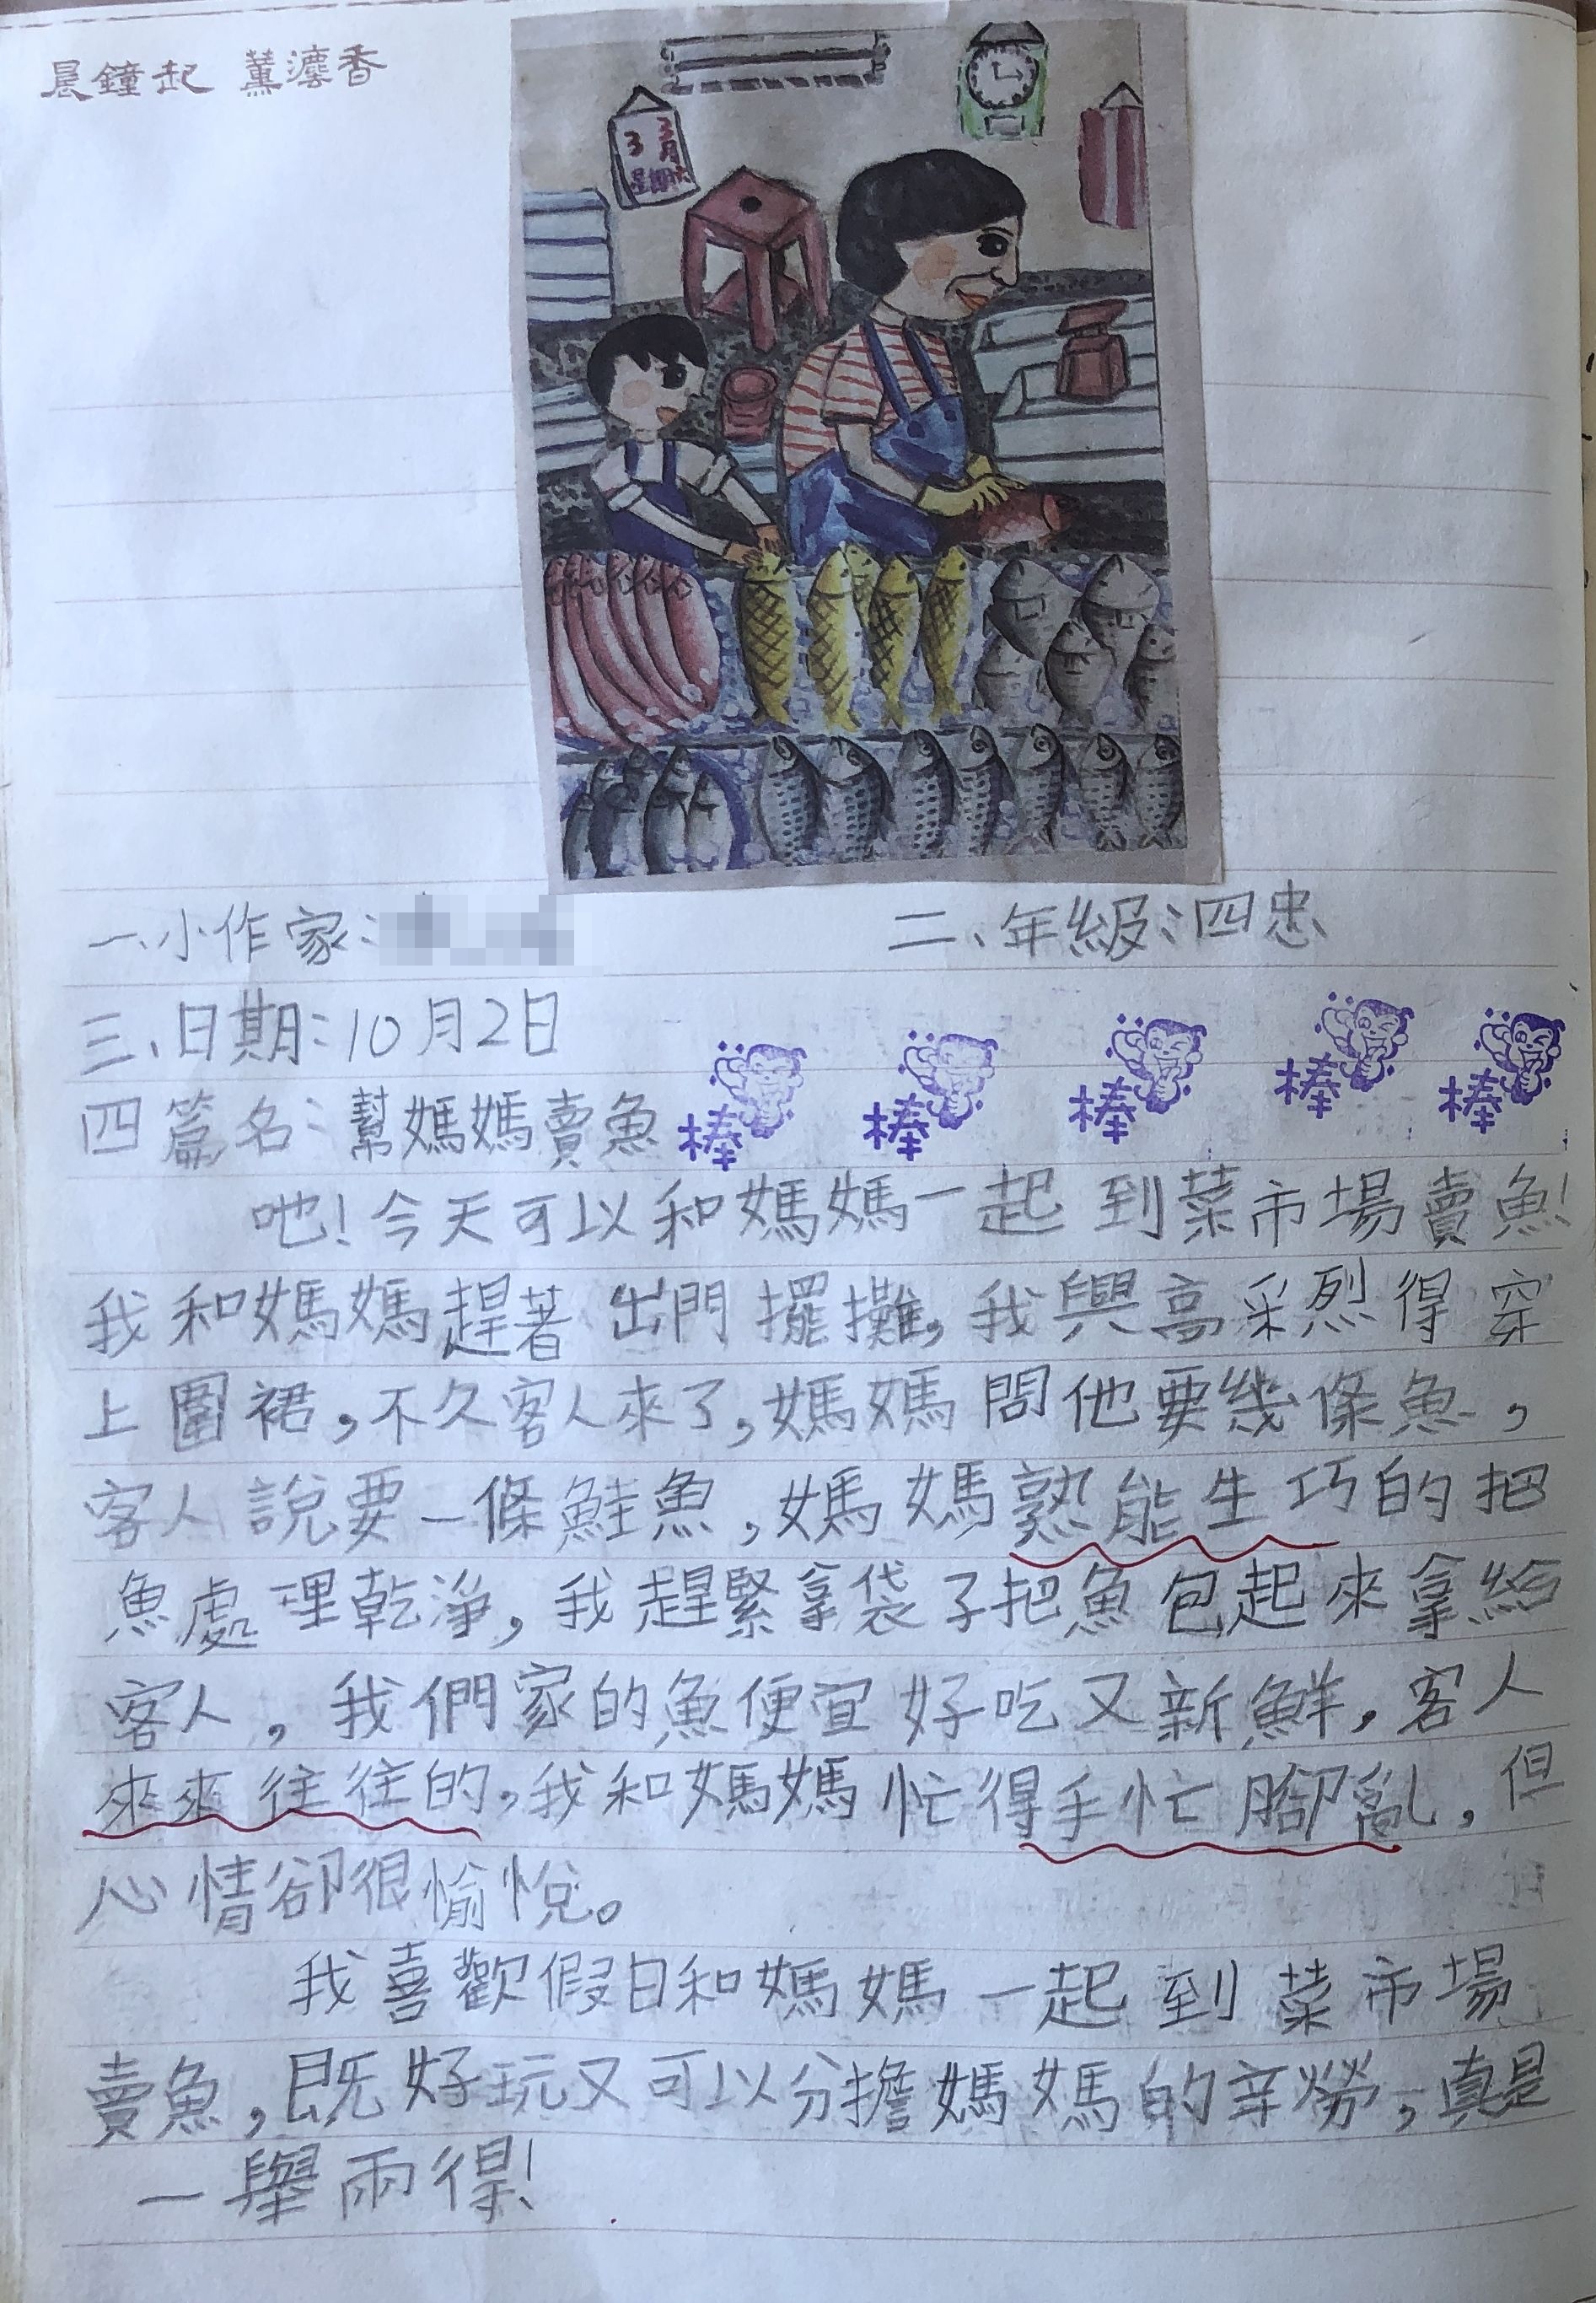 晨鐘起 薰瀍香
3月
3
星期六
一、小作家:
二、年級:四忠
三、日期:10月2日
四篇名:幫媽媽賣魚
棒 棒 棒 棒 棒
吔!今天可以和媽媽一起到菜市場賣魚!
我和媽媽趕著出門擺攤,我興高采烈得穿
上圍裙,不久客人來了,媽媽問他要幾條魚,
客人說要一條鮭魚,媽媽熟能生巧的把
魚處理乾淨,我趕緊拿袋子把魚包起來拿給
客人,我們家的魚便宜好吃又新鮮,客人
來來往往的,我和媽媽忙得手忙腳亂,但
心情卻很愉悅。
我喜歡假日和媽媽一起到菜市場
賣魚,既好玩又可以分擔媽媽的辛勞,真是
一舉兩得!